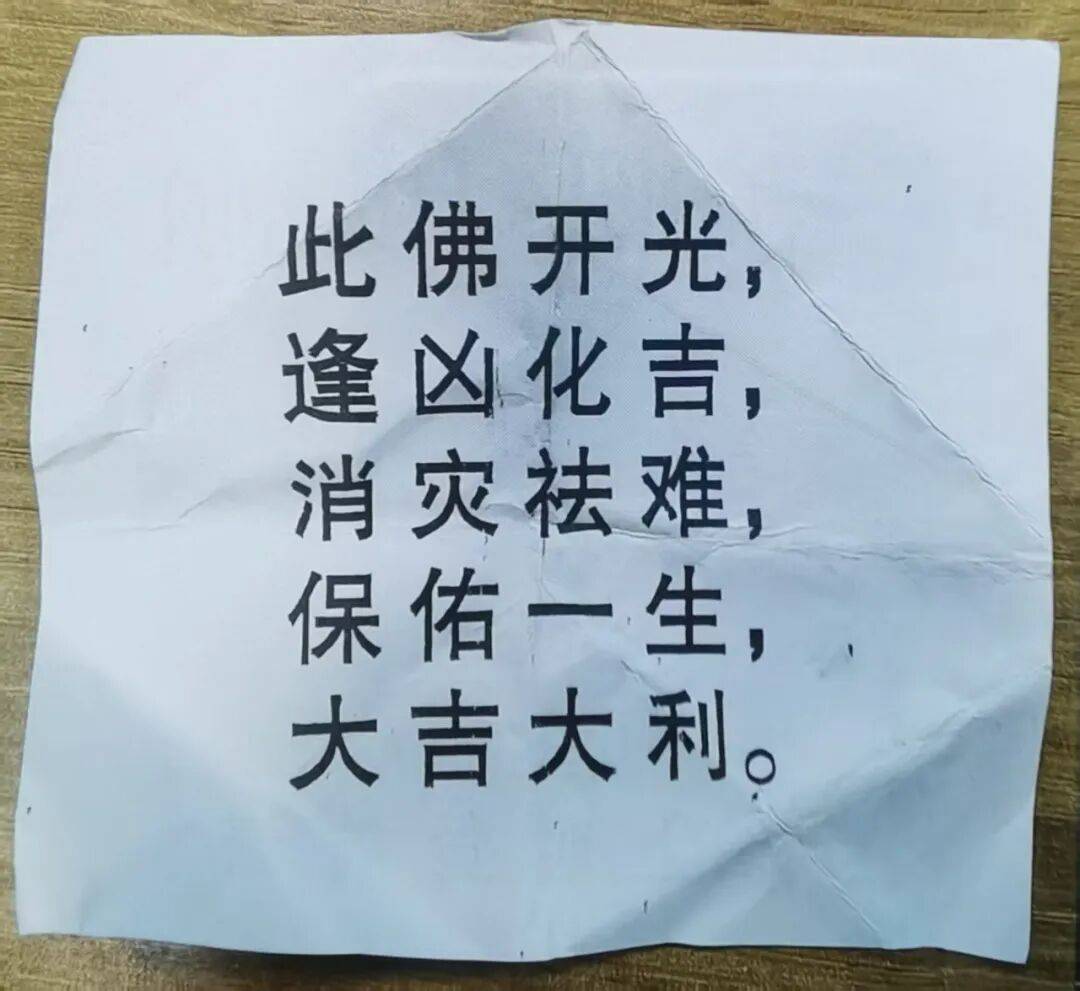 此佛开光，
逢凶化吉，
消灾祛难，
保佑一生，
大吉大利。